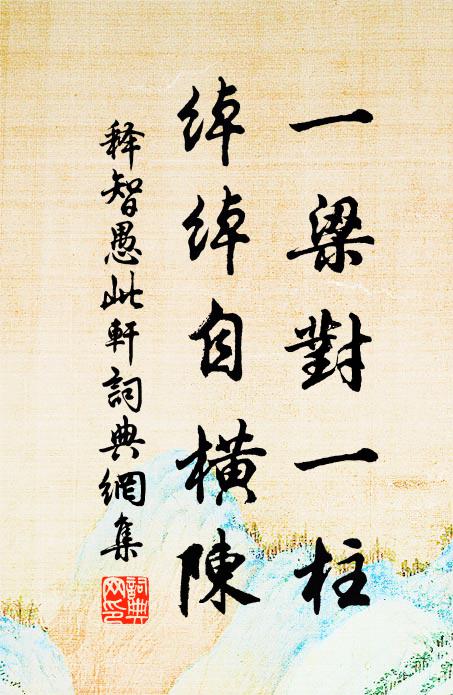 一梁對一柱
綽綽自橫陳
释智愚此軒詞典網集
詞典網印